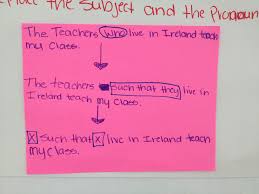 the Subject and the Pronoun
The Teachers who live in Ireland teach
my Class.
The teachers such that they live in
Ireland teach my Class.
X such that X live in Ireland teach
my Class.